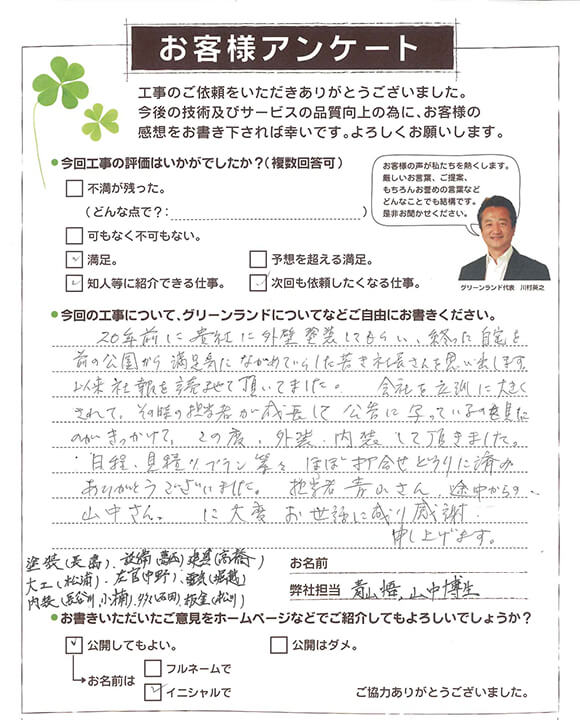 お客様アンケート
工事のご依頼をいただきありがとうございました。
今後の技術及びサービスの品質向上の為に、お客様の
感想をお書き下されば幸いです。よろしくお願いします。
今回工事の評価はいかがでしたか?(複数回答可)
不満が残った。
(どんな点で?: )
可もなく不可もない。
満足。
予想を超える満足。
知人等に紹介できる仕事。
次回も依頼したくなる仕事。
お客様の声が私たちを熱くします。
厳しいお言葉、ご提案、
もちろんお誉めの言葉など
どんなことでも結構です。
是非お聞かせください。
グリーンランド代表 川村英之
今回の工事について、グリーンランドについてなどご自由にお書きください。
20年前に貴社に外壁塗装してもらい、終った自宅を
前の公園から満足気にながめていらした若き社長さんを思い出します。
以来社報を読ませて頂いてました。 会社を立派に大きく
されて、その時の担当者が成長して公告に写っているのを見た
のがきっかけで、この度、外装、内装して頂きました。
日程、見積り、プラン等々 ほぼ打合せどうりに済み
ありがとうございました。担当者青山さん、途中からの、
山中さん、 に大変お世話に成り感謝
申し上げます。
塗装(長島)、設備()、建具(高橋)
大工(松浦)、左官(中野)、電気(堀越)
内装(長谷川、小楠)、タイル(石田)、板金(松川)
お名前
弊社担当 青山悟、山中博生
お書きいただいたご意見をホームページなどでご紹介してもよろしいでしょうか?
公開してもよい。
公開はダメ。
お名前は
フルネームで
イニシャルで
ご協力ありがとうございました。